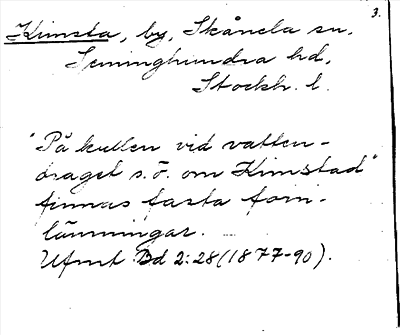 3.
Kimsta, by, Skånela sn,
Seminghundra hd,
Stockh. l.
"På kullen vid vatten-
draget s.ö. om Kimstad"
finnas fasta forn-
lämningar.
Ufmt Bd 2:28 (1877-90).